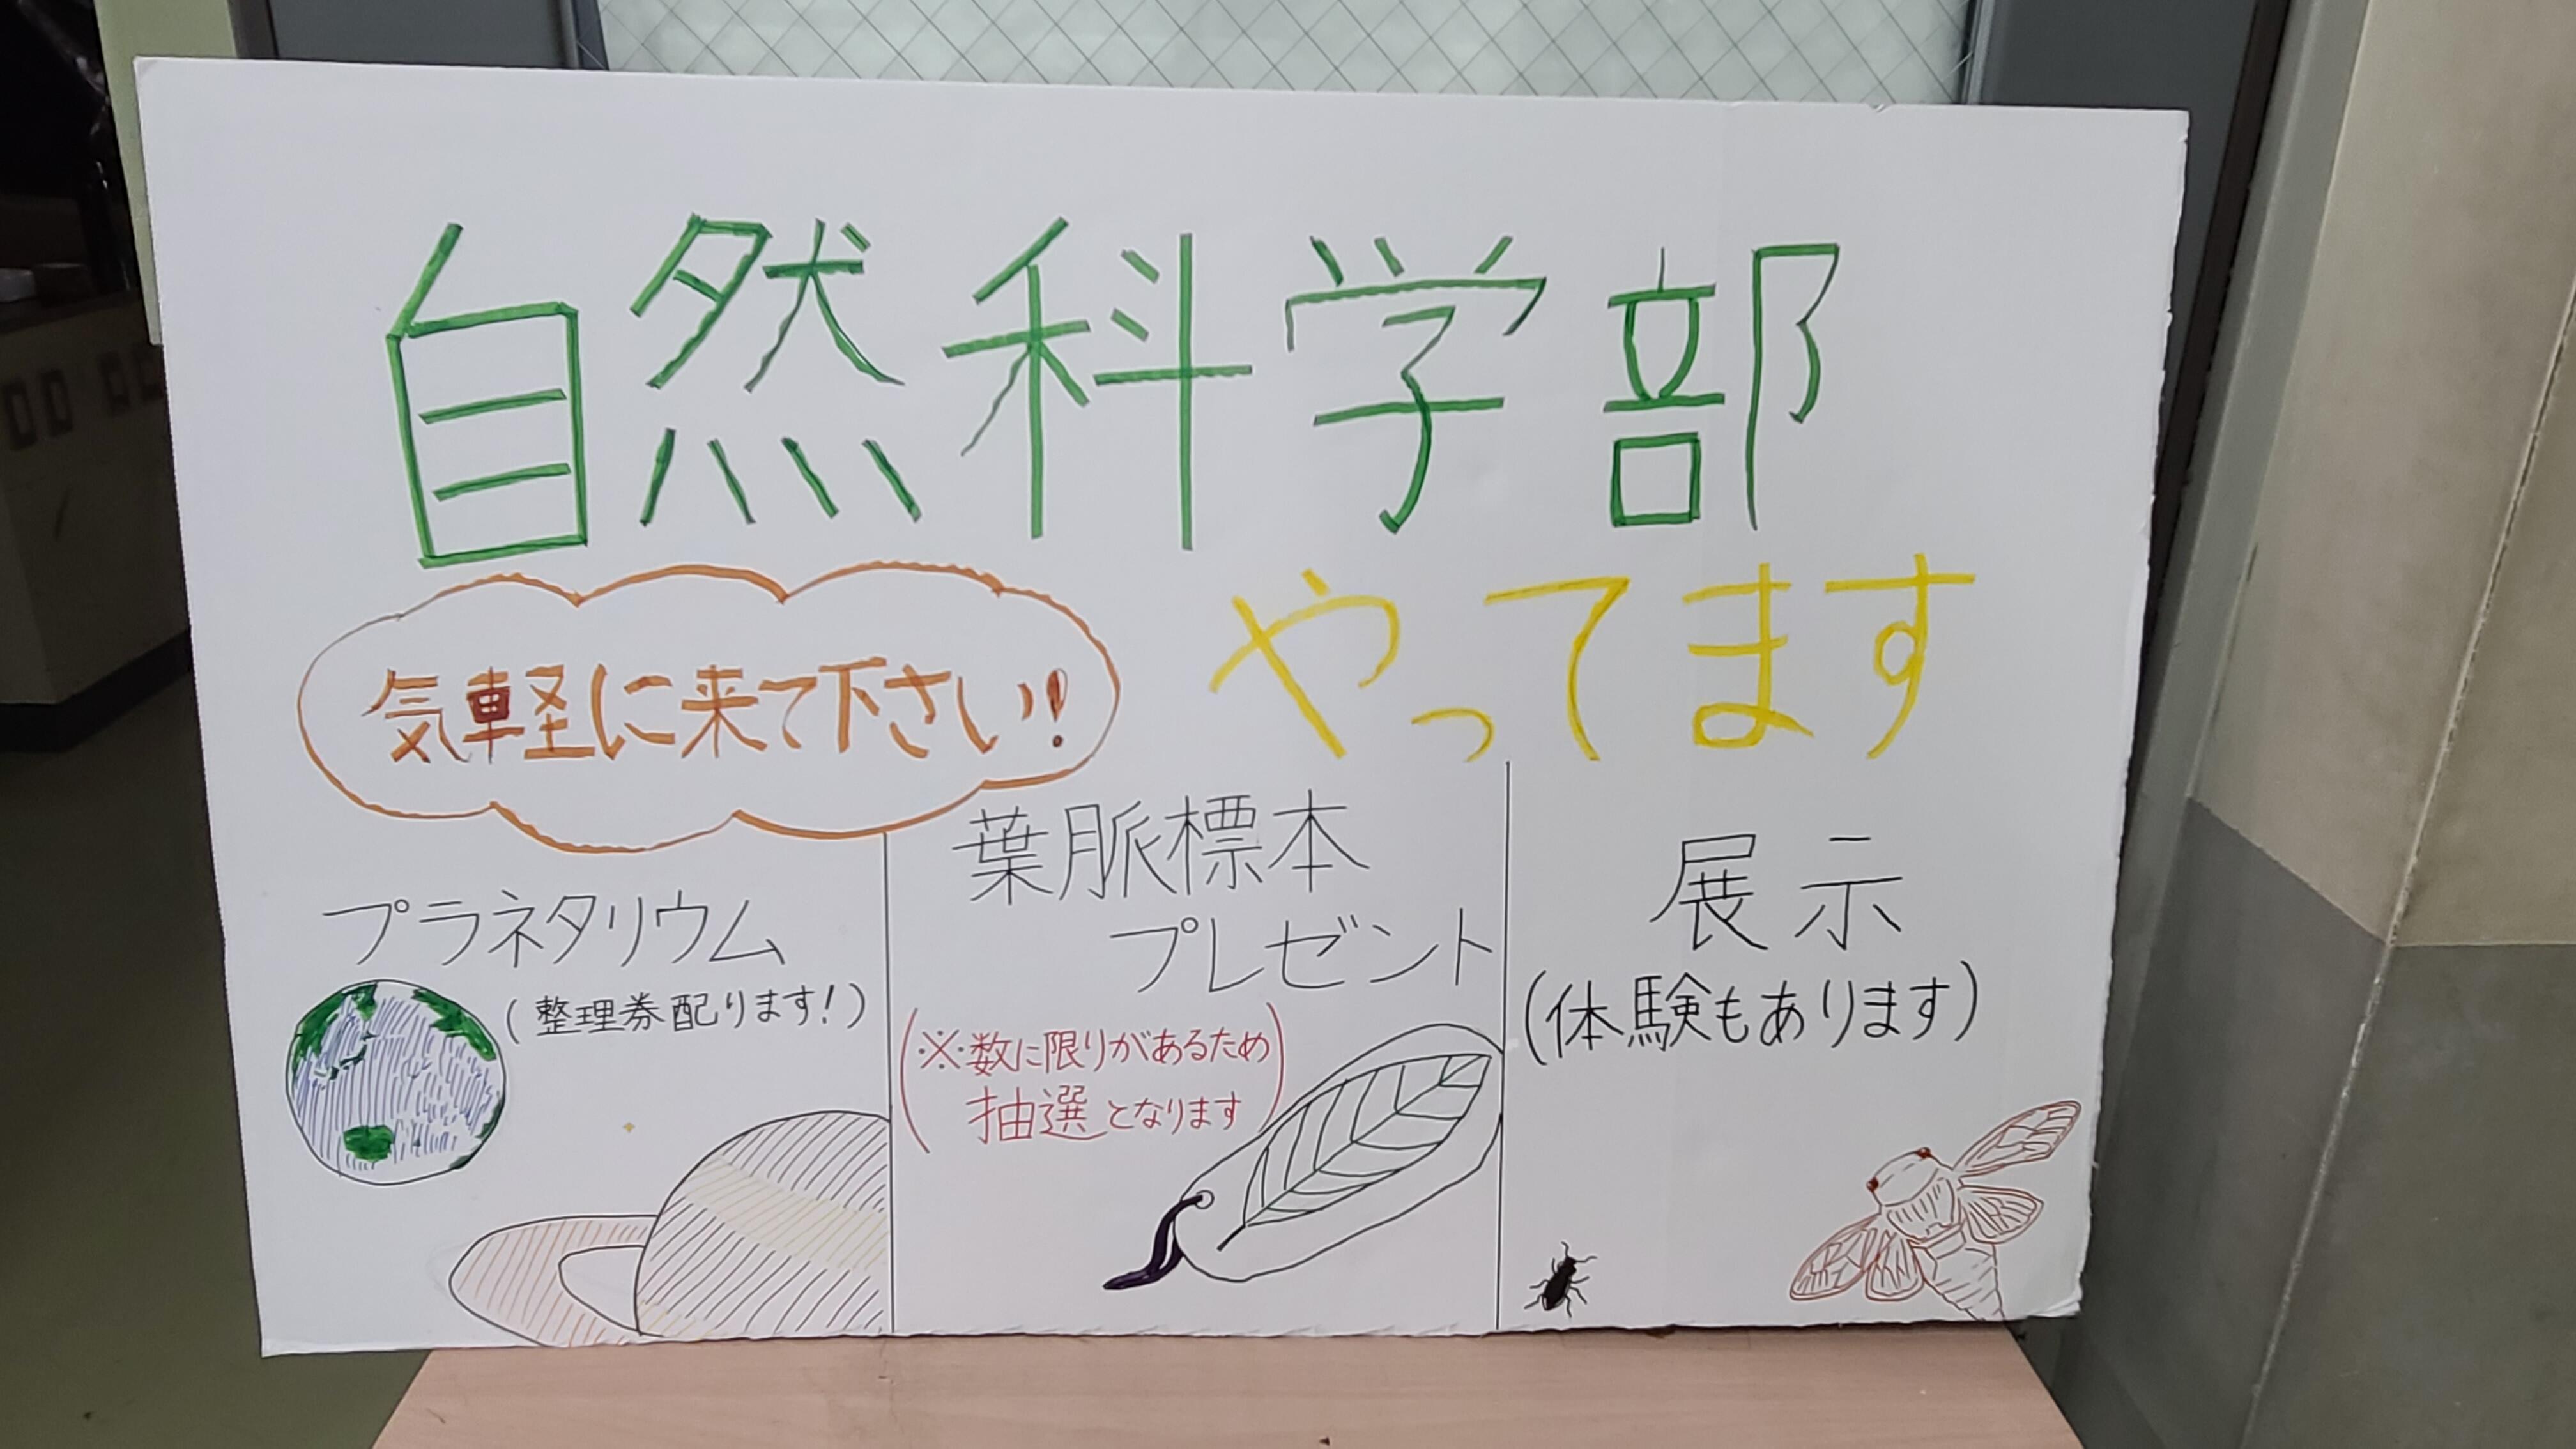 自然科学部
やってます
気軽に来て下さい!
プラネタリウム
(整理券配ります!)
葉脈標本
プレゼント
(※数に限りがあるため
抽選となります)
展示
(体験もあります)